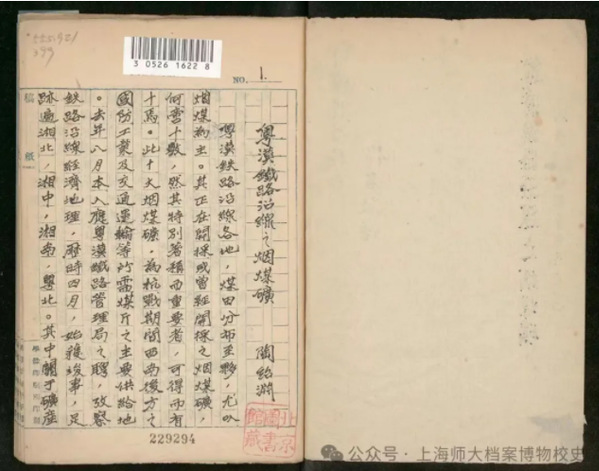 3 0526 1622 8
NO. 1.
粵漢鐵路沿線之烟煤礦　陶紹淵
粵漢鉄路沿線各地，煤田分布至夥，尤以
烟煤為主。其正在開採或曾經開採之烟煤礦，
何啻十數，然其特別著稱而重要者，可得而有
十焉。此十大烟煤礦，為抗戰期間西南後方之
國防工業及交通運輸等所需煤斤之主要供給地
。去年八月本人應粵漢鐵路管理局之聘，攷察
鉄路沿線經濟地理，歷時四月，始穫竣事，足
跡遍湘北，湘中，湘南，粵北。其中關于礦產
稿紙
北京圖書館藏
229294
公众号·上海师大档案博物校史